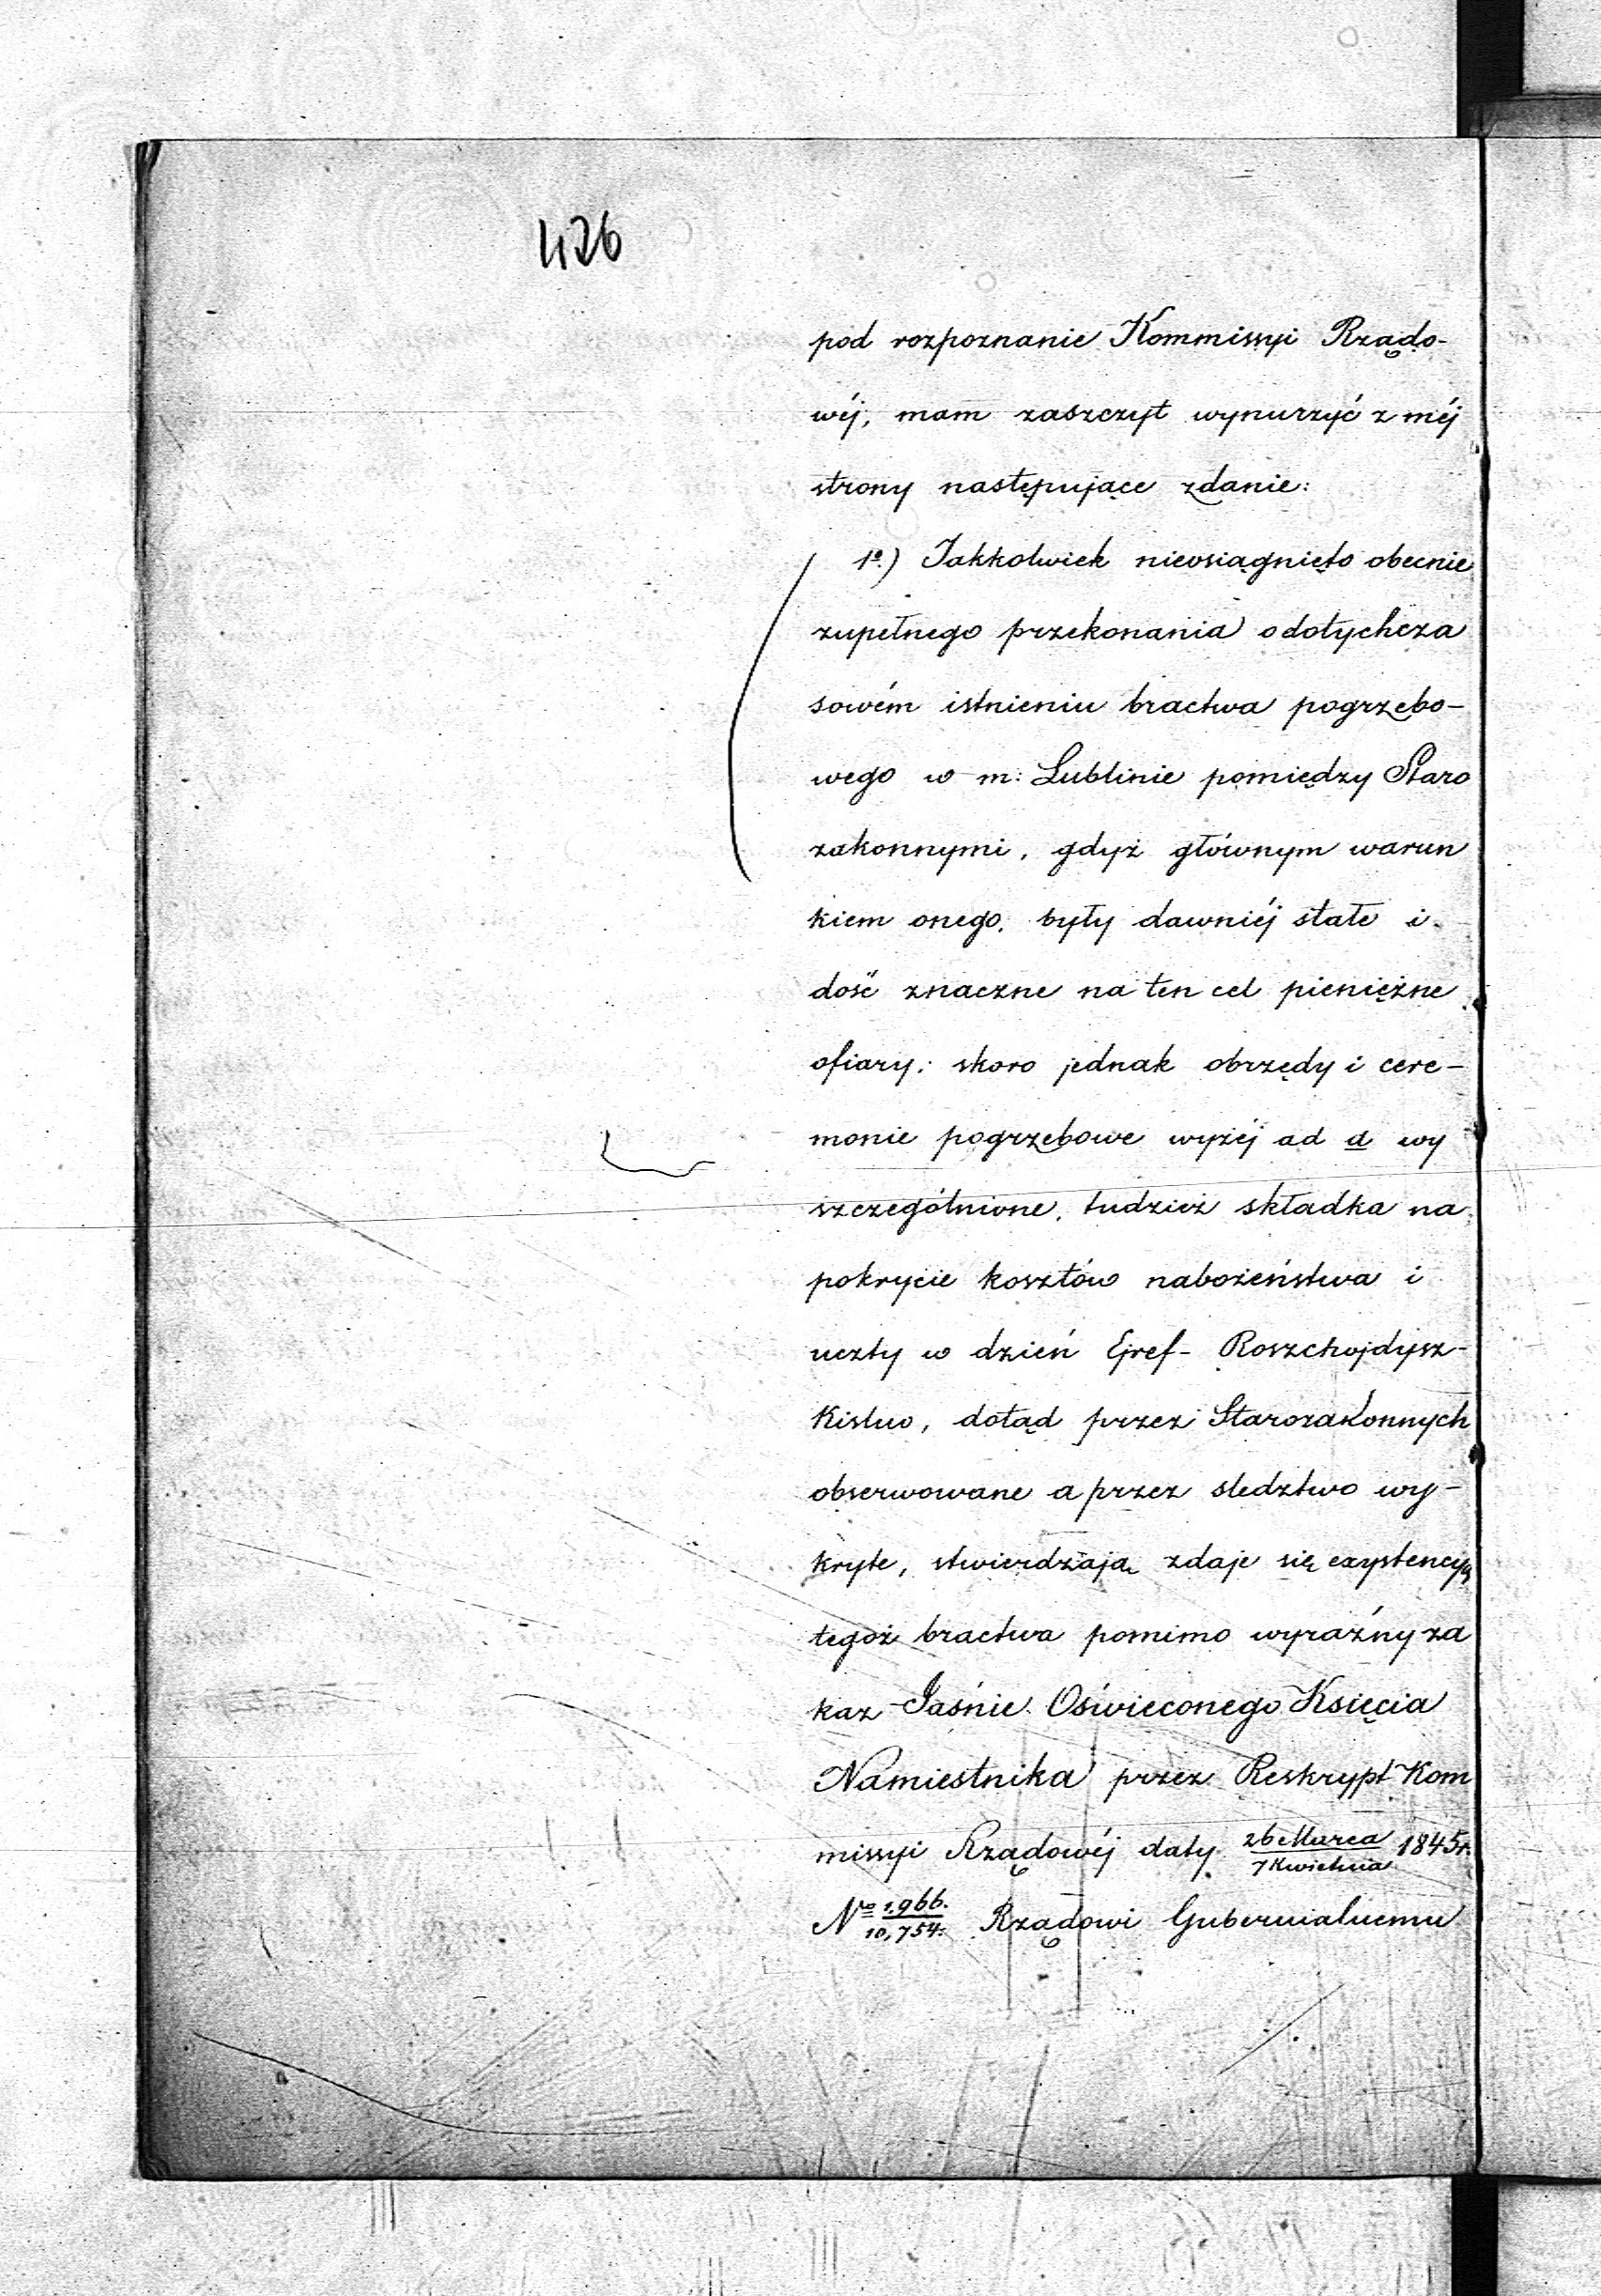 426
pod rozpoznanie Kommissyi Rządo-
wéj, mam zaszczyt wynurzyć z méj
strony następujące zdanie:
1º.) Jakkolwiek nieosiągnięto obecnie
zupełnego przekonania o dotychcza
sowém istnieniu bractwa pogrzebo-
wego w m: Lublinie pomiędzy Staro
zakonnymi, gdyż głównym warun
kiem onego, były dawniéj stałe i
dość znaczne na ten cel pieniężne
ofiary; skoro jednak obrzędy i cere-
monie pogrzebowe wyżéj ad a wy
szczególnione, tudzież składka na
pokrycie kosztów nabożeństwa i
uczty w dzień Ejref- Roszchojdysz-
Kislwo, dotąd przez Starozakonnych
obserwowane a przez sledztwo wy-
kryte, stwierdzają zdaje się exystencyą
tegoż bractwa pomimo wyraźny za
kaz Jaśnie Oświeconego Księcia
Namiestnika przez Reskrypt Kom
missyi Rządowéj daty 26 Marca/7 Kwietnia 1845r.
Nº 1,966./10,754: Rządowi Gubernialnemu